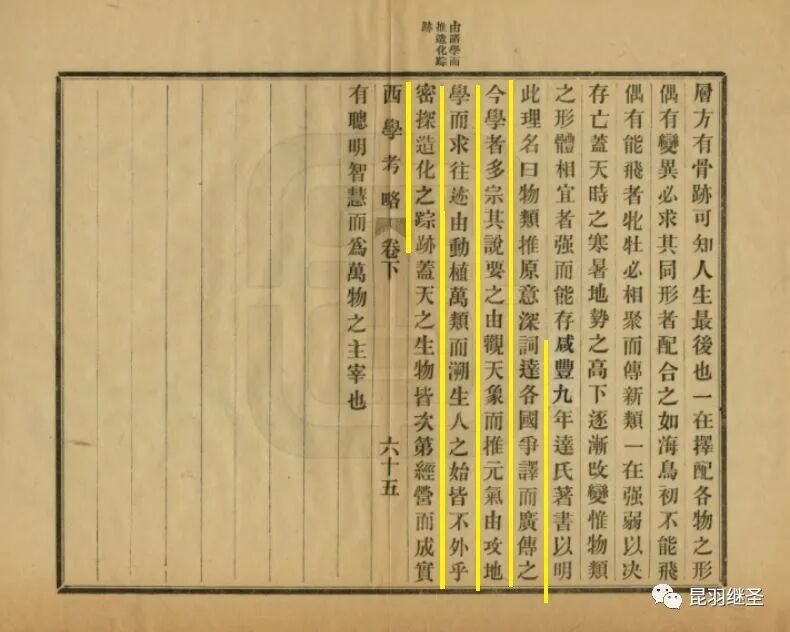 由諸學而
推造化踪
跡
層方有骨跡可知人生最後也一在擇配各物之形
偶有變異必求其同形者配合之如海鳥初不能飛
偶有能飛者牝牡必相聚而傳新類一在强弱以决
存亡蓋天時之寒暑地勢之高下逐漸改變惟物類
之形體相宜者强而能存咸豐九年達氏著書以明
此理名曰物類推原意深詞達各國爭譯而廣傳之
今學者多宗其說要之由觀天象而推元氣由攻地
學而求往迹由動植萬類而溯生人之始皆不外乎
密探造化之踪跡蓋天之生物皆次第經營而成實
西學考略 卷下 六十五
有聰明智慧而爲萬物之主宰也
昆羽继圣